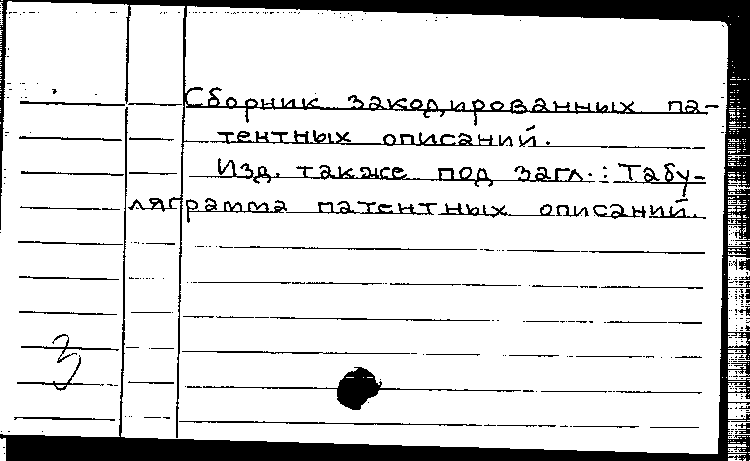 Сборник закодированных па-
тентных описаний.
Изд. также под загл.: Табу-
ляграмма патентных описаний.
З